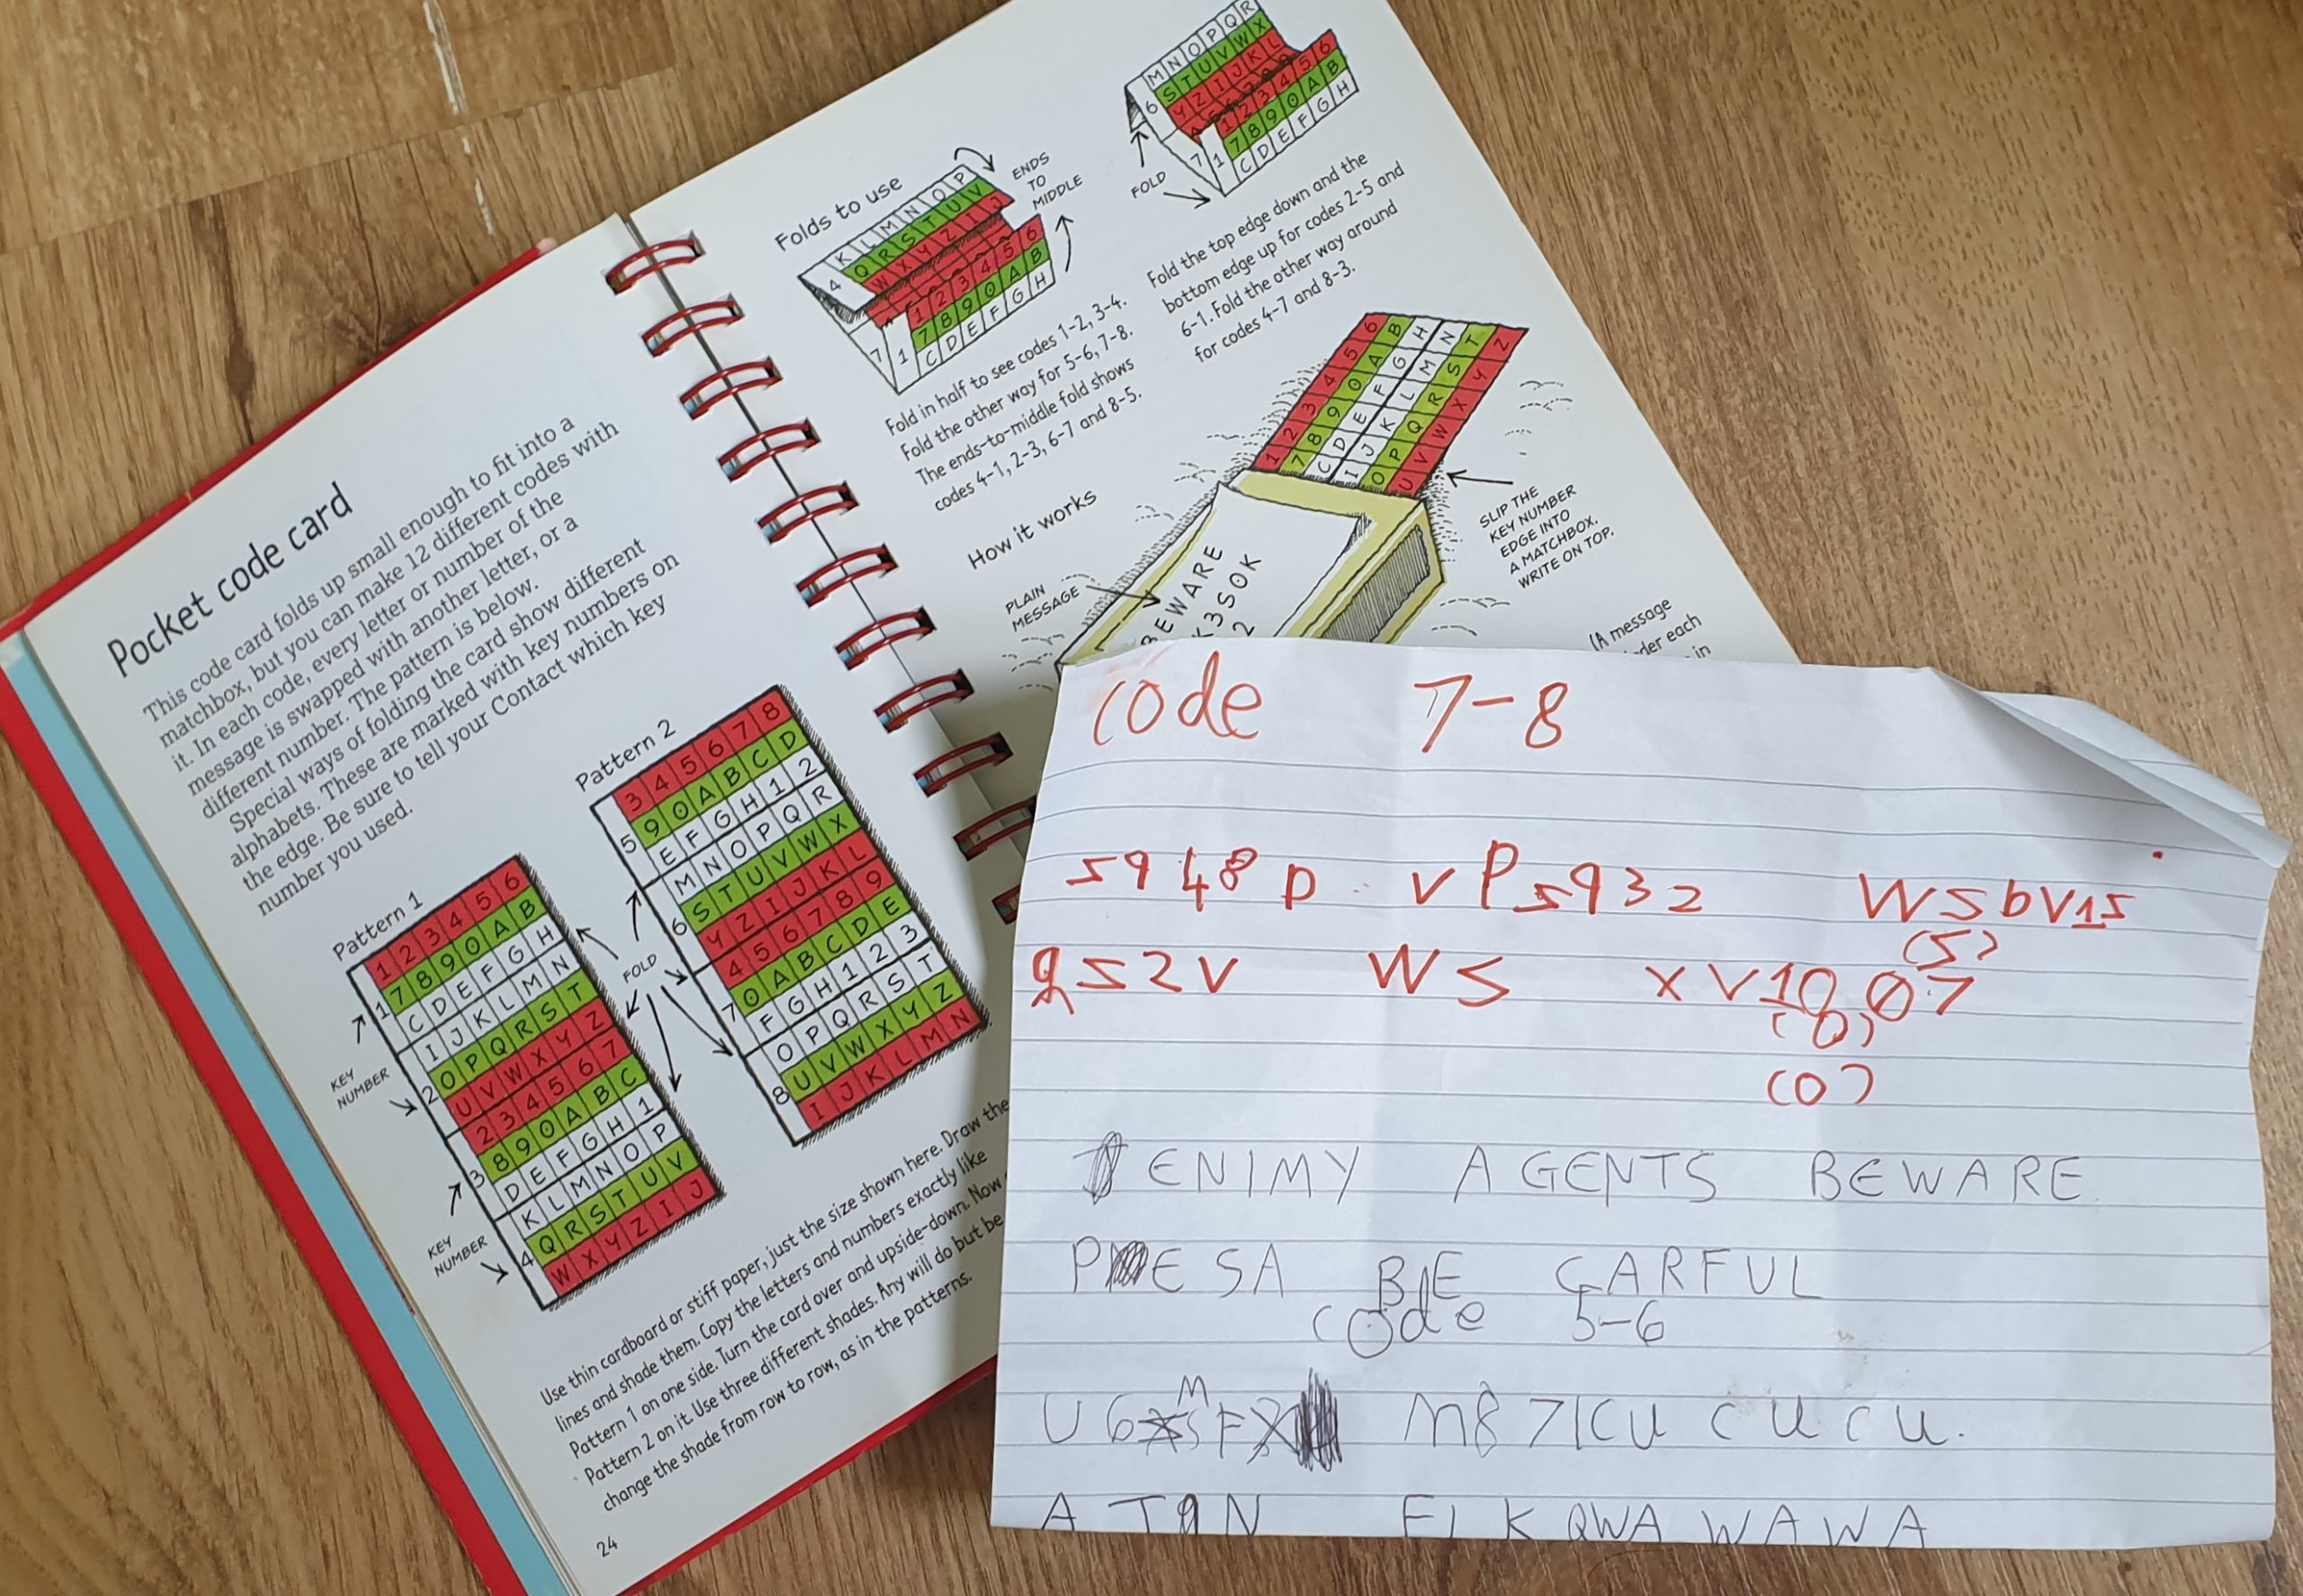 Pocket code card
This code card folds up small enough to fit into a
matchbox, but you can make 12 different codes with
it. In each code, every letter or number of the
message is swapped with another letter, or a
different number. The pattern is below.
Special ways of folding the card show different
alphabets. These are marked with key numbers on
the edge. Be sure to tell your Contact which key
number you used.
Pattern 1
1 2 3 4 5 6
7 8 9 0 A B
1
C D E F G H
I J K L M N
O P Q R S T
2
U V W X Y Z
2 3 4 5 6 7
8 9 0 A B C
3
D E F G H 1
K L M N O P
Q R S T U V
4
W X Y Z I J
KEY
NUMBER
KEY
NUMBER
FOLD
Pattern 2
3 4 5 6 7 8
9 0 A B C D
5
E F G H 1 2
M N O P Q R
S T U V W X
6
Y Z I J K L
4 5 6 7 8 9
0 A B C D E
7
F G H 1 2 3
O P Q R S T
U V W X Y Z
8
I J K L M N
Use thin cardboard or stiff paper, just the size shown here. Draw the
lines and shade them. Copy the letters and numbers exactly like
Pattern 1 on one side. Turn the card over and upside-down. Now
Pattern 2 on it. Use three different shades. Any will do but be
change the shade from row to row, as in the patterns.
24
Folds to use
K L M N O P
4
Q R S T U V
W X Y Z I J
1 2 3 4 5 6
7 8 9 0 A B
7 1
C D E F G H
ENDS
TO
MIDDLE
Fold in half to see codes 1-2, 3-4.
Fold the other way for 5-6, 7-8.
The ends-to-middle fold shows
codes 4-1, 2-3, 6-7 and 8-5.
M N O P Q R
S T U V W X
6
Y Z I J K L
1 2 3 4 5 6
7 8 9 0 A B
7 1
C D E F G H
FOLD
Fold the top edge down and the
bottom edge up for codes 2-5 and
6-1. Fold the other way around
for codes 4-7 and 8-3.
How it works
1 2 3 4 5 6
7 8 9 0 A B
C D E F G H
I J K L M N
O P Q R S T
U V W X Y Z
SLIP THE
KEY NUMBER
EDGE INTO
A MATCHBOX.
WRITE ON TOP.
PLAIN
MESSAGE
BEWARE
K3SOK
2
(A message
under each
in
code 7-8
5948D VP5932 WSbV15
(5)
9S2V WS XV10,07
(0)
(0)
ENIMY AGENTS BEWARE
PESA BE CARFUL
code 5-6
U6 M F M871CU CUCU.
A T9N FLKQWAWAWA